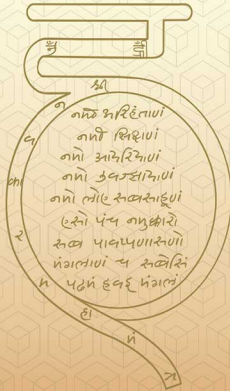 શ્રી
નમો અરિહંતાણં
નમો સિદ્ધાણં
નમો આયરિયાણં
નમો ઉવજ્ઝાયાણં
નમો લોએ સવ્વસાહૂણં
એસો પંચ નમુક્કારો
સવ્વ પાવપ્પણાસણો
મંગલાણં ચ સવ્વેસિં
પઢમં હવઇ મંગલં
ન વ કા ર મ હા મં ત્ર